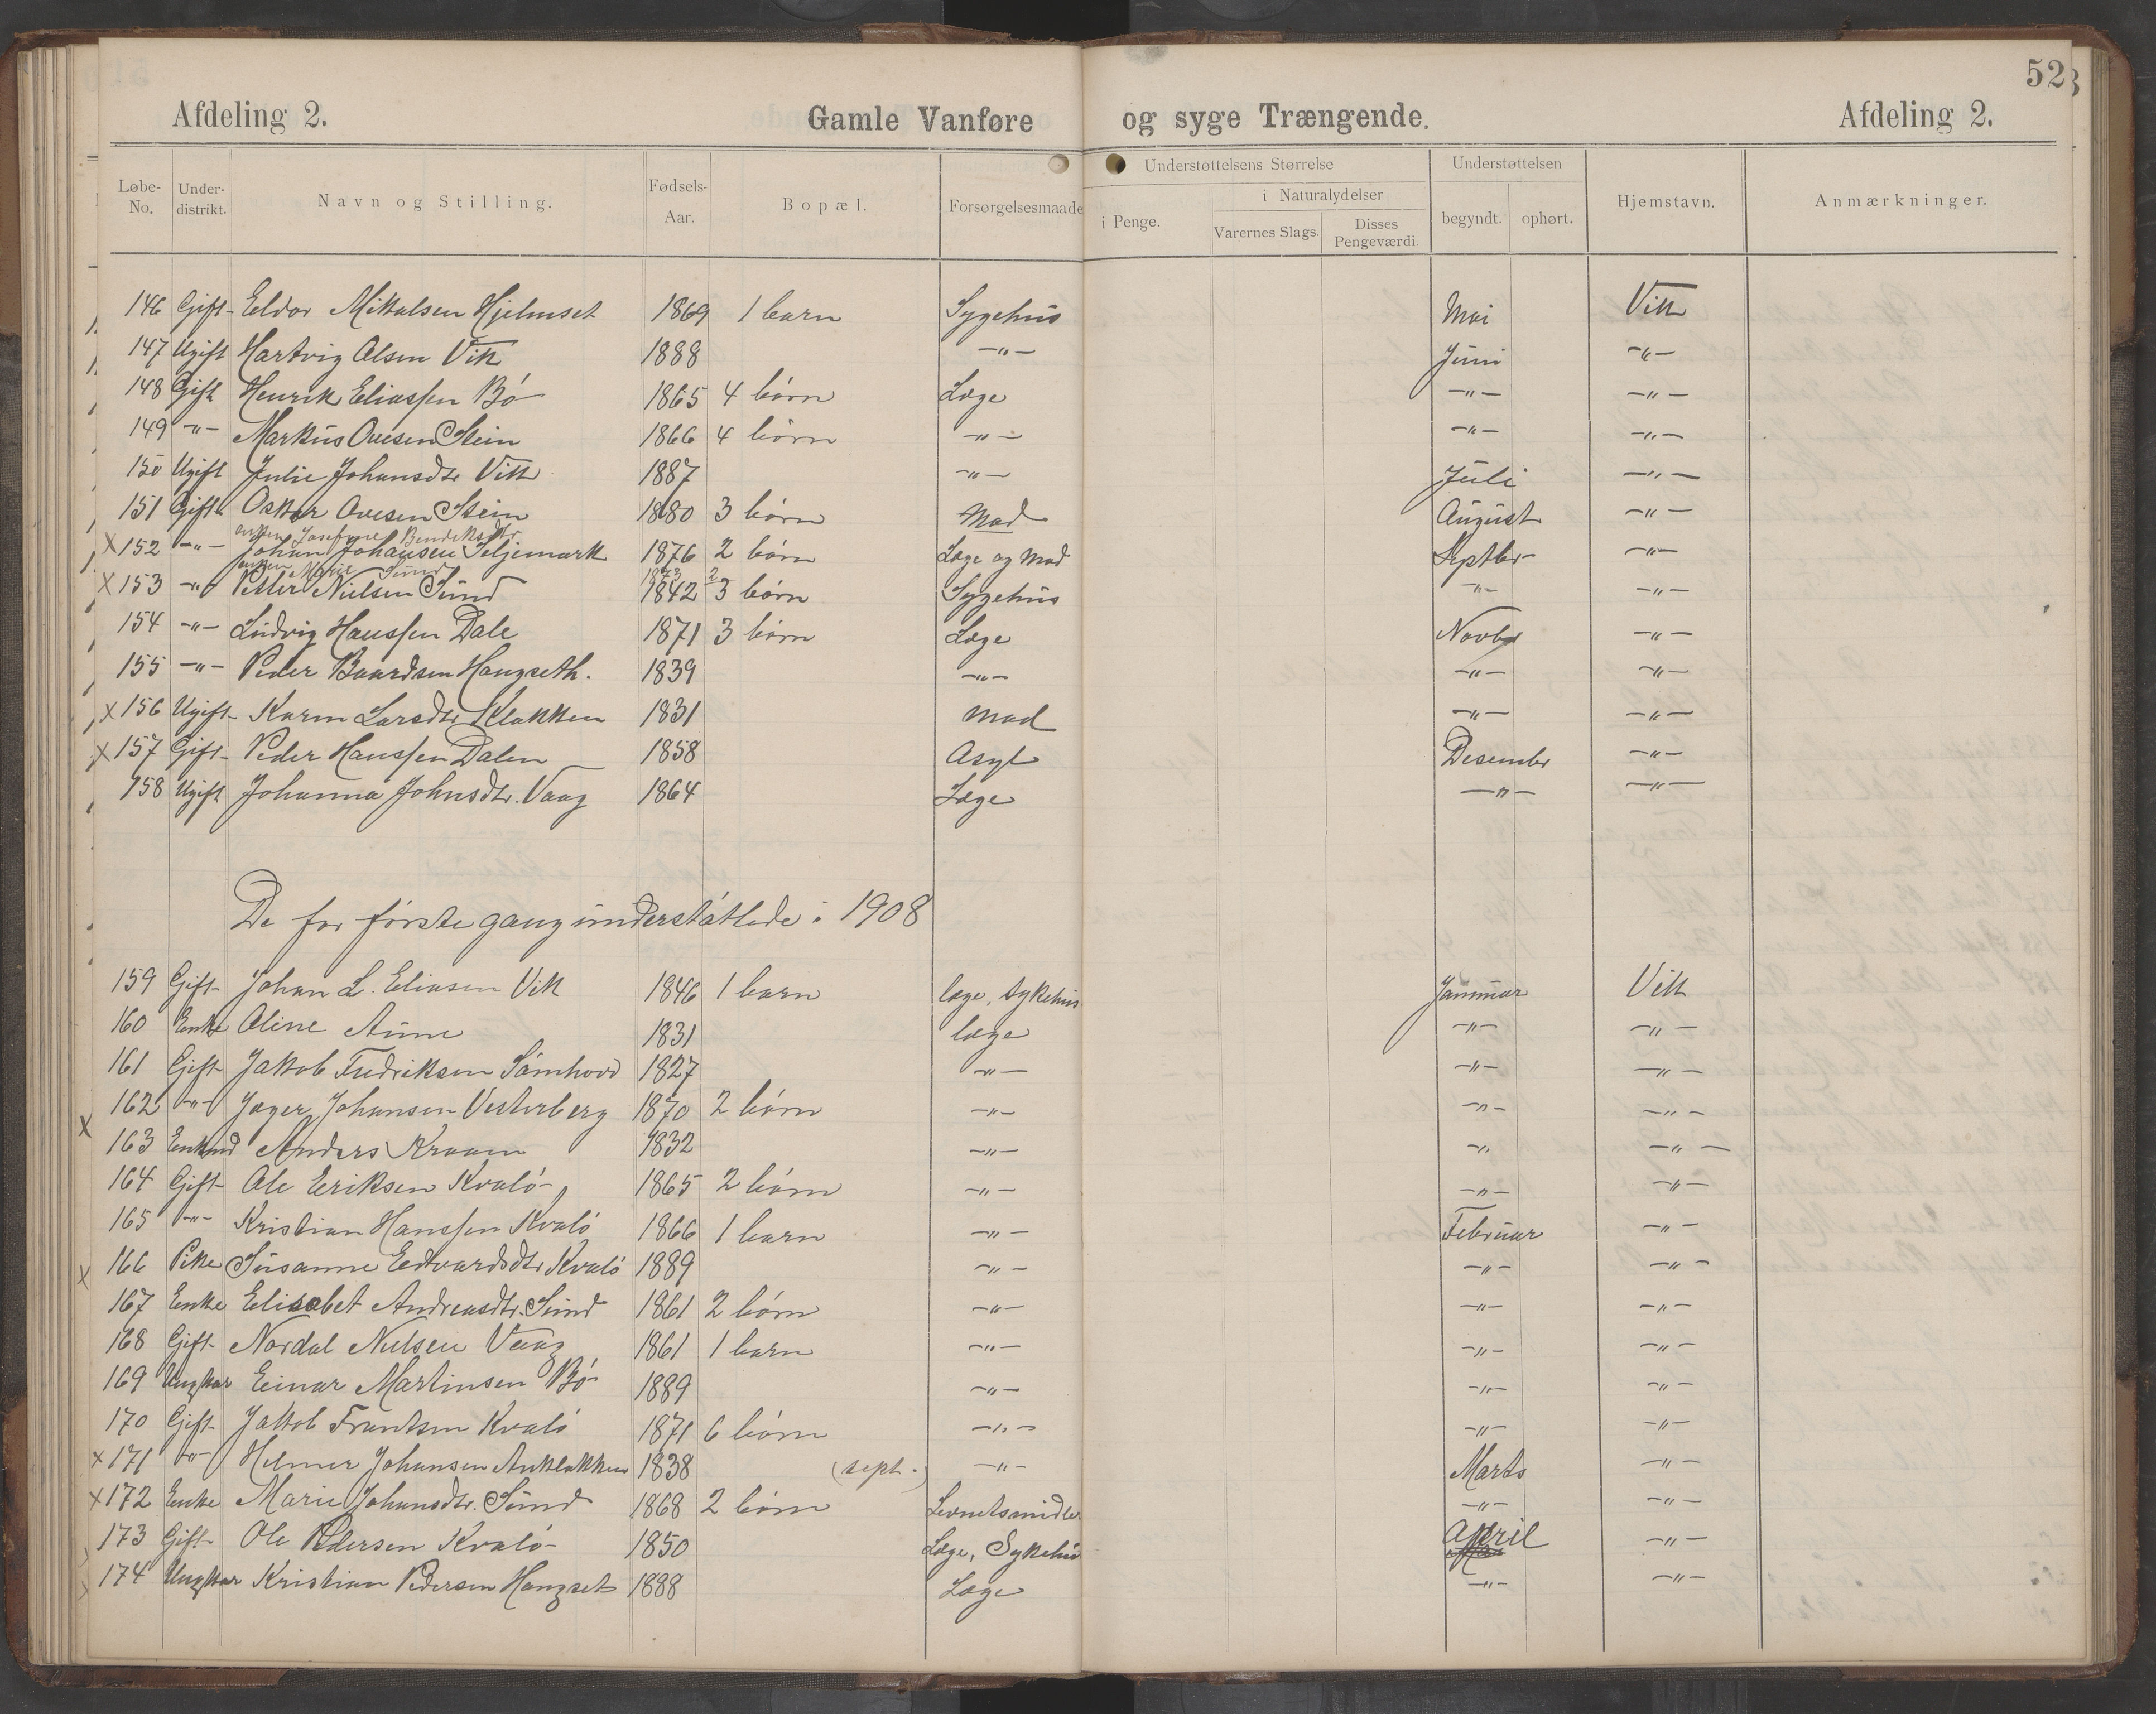 52
Afdeling 2. Gamle Vanføre og syge Trængende. Afdeling 2.
Løbe-No. Under-distrikt. Navn og Stilling. Fødsels-Aar. Bopæl. Forsørgelsesmaade Understøttelsens Størrelse i Penge. i Naturalydelser Varernes Slags. Disses Pengeværdi. Understøttelsen begyndt. ophørt. Hjemstavn. Anmærkninger.
146 Gift Eldor Mikalsen Hjelmset 1869 1 barn Sygehus Mai Vik
147 Ugift Hartvig Olsen Vik 1888 -"- Juni -"-
148 Gift Henrik Eliassen Bó 1865 4 börn Læge -"- -"-
149 -"- Markus Ovesen Stein 1866 4 börn -"- -"- -"-
150 Ugift Julie Johansdtr Vik 1887 -"- Juli -"-
151 Gift Oskar Ovesen Stein 1880 3 börn Mad August -"-
enken Josefine Bendiksdtr
X 152 -"- Johan Johansen Seljemark 1876 2 börn Læge og Mad Septbr -"-
enken Marie Sund 1873 2
X 153 -"- Petter Nielsen Sund 1842 3 börn Sygehus -"- -"-
154 -"- Ludvig Hanssen Dale 1871 3 börn Læge Novbr -"-
155 -"- Peder Baardsen Haugseth. 1839 -"- -"- -"-
X 156 Ugift Karen Larsdtr Klakken 1831 Mad -"- -"-
X 157 Gift Peder Hanssen Dalen 1858 Asyl Desembr -"-
158 Ugift Johanna Johnsdtr. Vaag 1864 Læge -"- -"-
De for förste gang understöttede i 1908
159 Gift Johan L. Eliasen Vik 1846 1 barn læge, sykehus Januuar Vik
160 Enke Oline Aune 1831 læge -"- -"-
161 Gift Jakob Fredriksen Sómhovd 1827 -"- -"- -"-
X 162 -"- Jæger Johansen Vesterberg 1870 2 börn -"- -"- -"-
163 Enkmd Anders Kraam 1832 -"- -"- -"-
164 Gift Ole Eriksen Kvaló 1865 2 börn -"- -"- -"-
165 -"- Kristian Hanssen Kvaló 1866 1 barn -"- Februar -"-
X 166 Pike Susanne Edvardsdtr Kvaló 1889 -"- -"- -"-
167 Enke Elisabet Andreasdtr. Sund 1861 2 börn -"- -"- -"-
168 Gift Nordal Nielsen Vaag 1861 1 barn -"- -"- -"-
169 Ungkar Einar Martinsen Bó 1889 -"- -"- -"-
170 Gift Jakob Frantsen Kvaló 1871 6 börn -"- -"- -"-
X 171 -"- Helmer Johansen Auklakken 1838 (sept.) -"- Marts -"-
X 172 Enke Marie Johansdtr. Sund 1868 2 börn Levnetsmidler -"- -"-
173 Gift Ole Pedersen Kvaló 1850 Læge, Sykehus April -"-
174 Ungkar Kristian Pedersen Haugset 1888 Læge -"- -"-